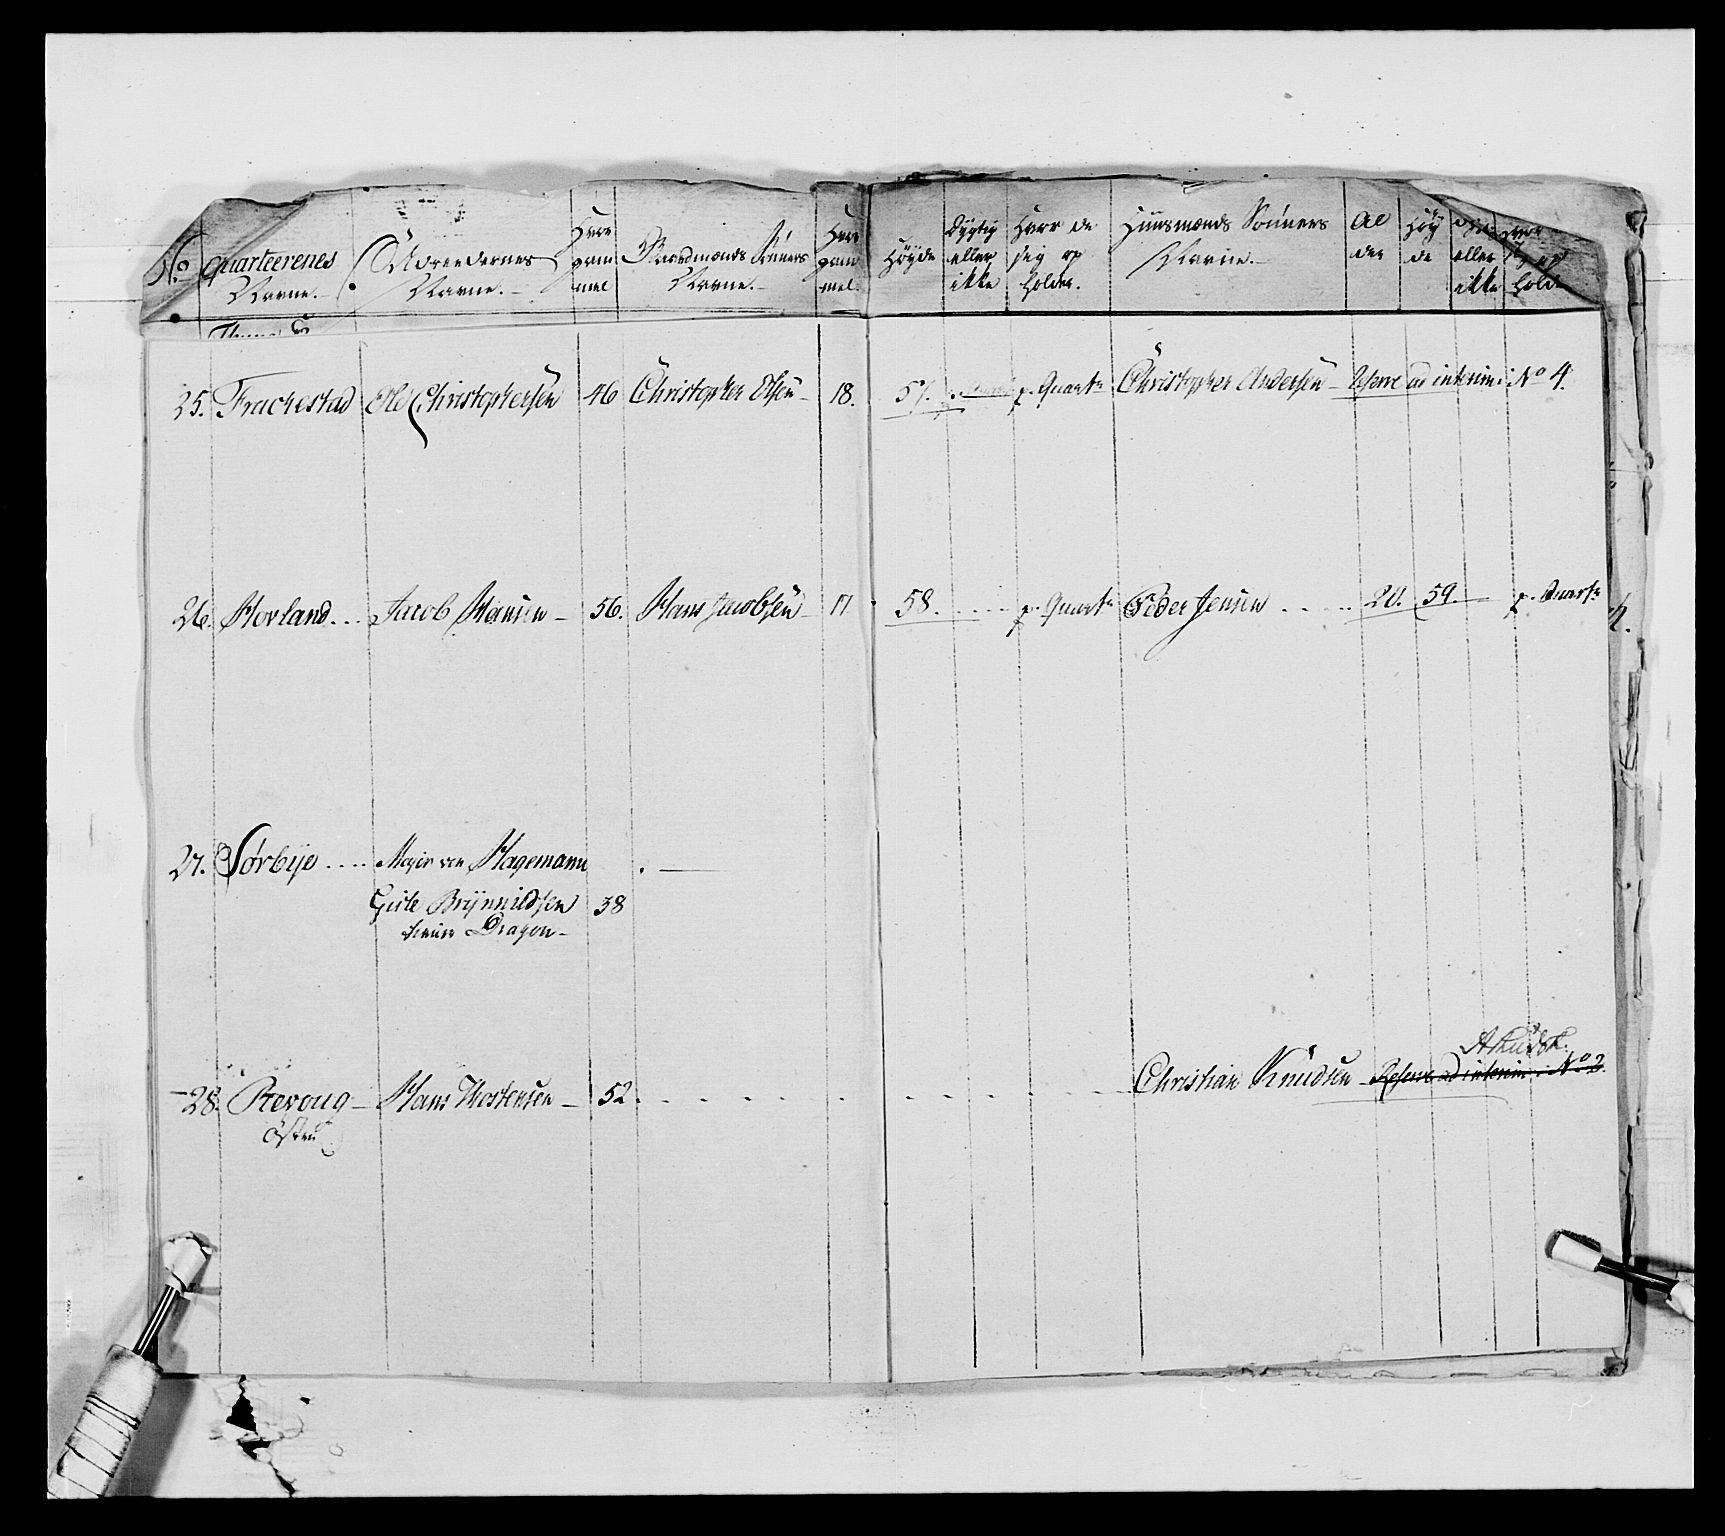 No. Quarteerenes Navne.- Udreedernes Navne.- Hvor gam mel Gaardmænds Sönners Navne.- Hvor gam mel. Höyde Dygtig eller ikke Hvor de sig op holder. Huusmænds Sönners Navne.- Al der Höy de eller ikke sig op holde
25. Frachestad Ole Christophersen 46 Christopher Olsen - 18. 57. p. Quart. Christopher Andersen - Reserve ad interim i No 4.
26. Hovland... Jacob Hansen - 56. Hans Jacobsen - 17 58. p. Quart. Peder Jensen .... 20. 59. p. Quart.
27. Sørbye .... Major von Hagemann . —
Gisle Brynnildsen 38
Dragon -
28. Revoug - Hans Thostensen - 52. Christian Knudsen - Reserve ad interim i No 2
Östre